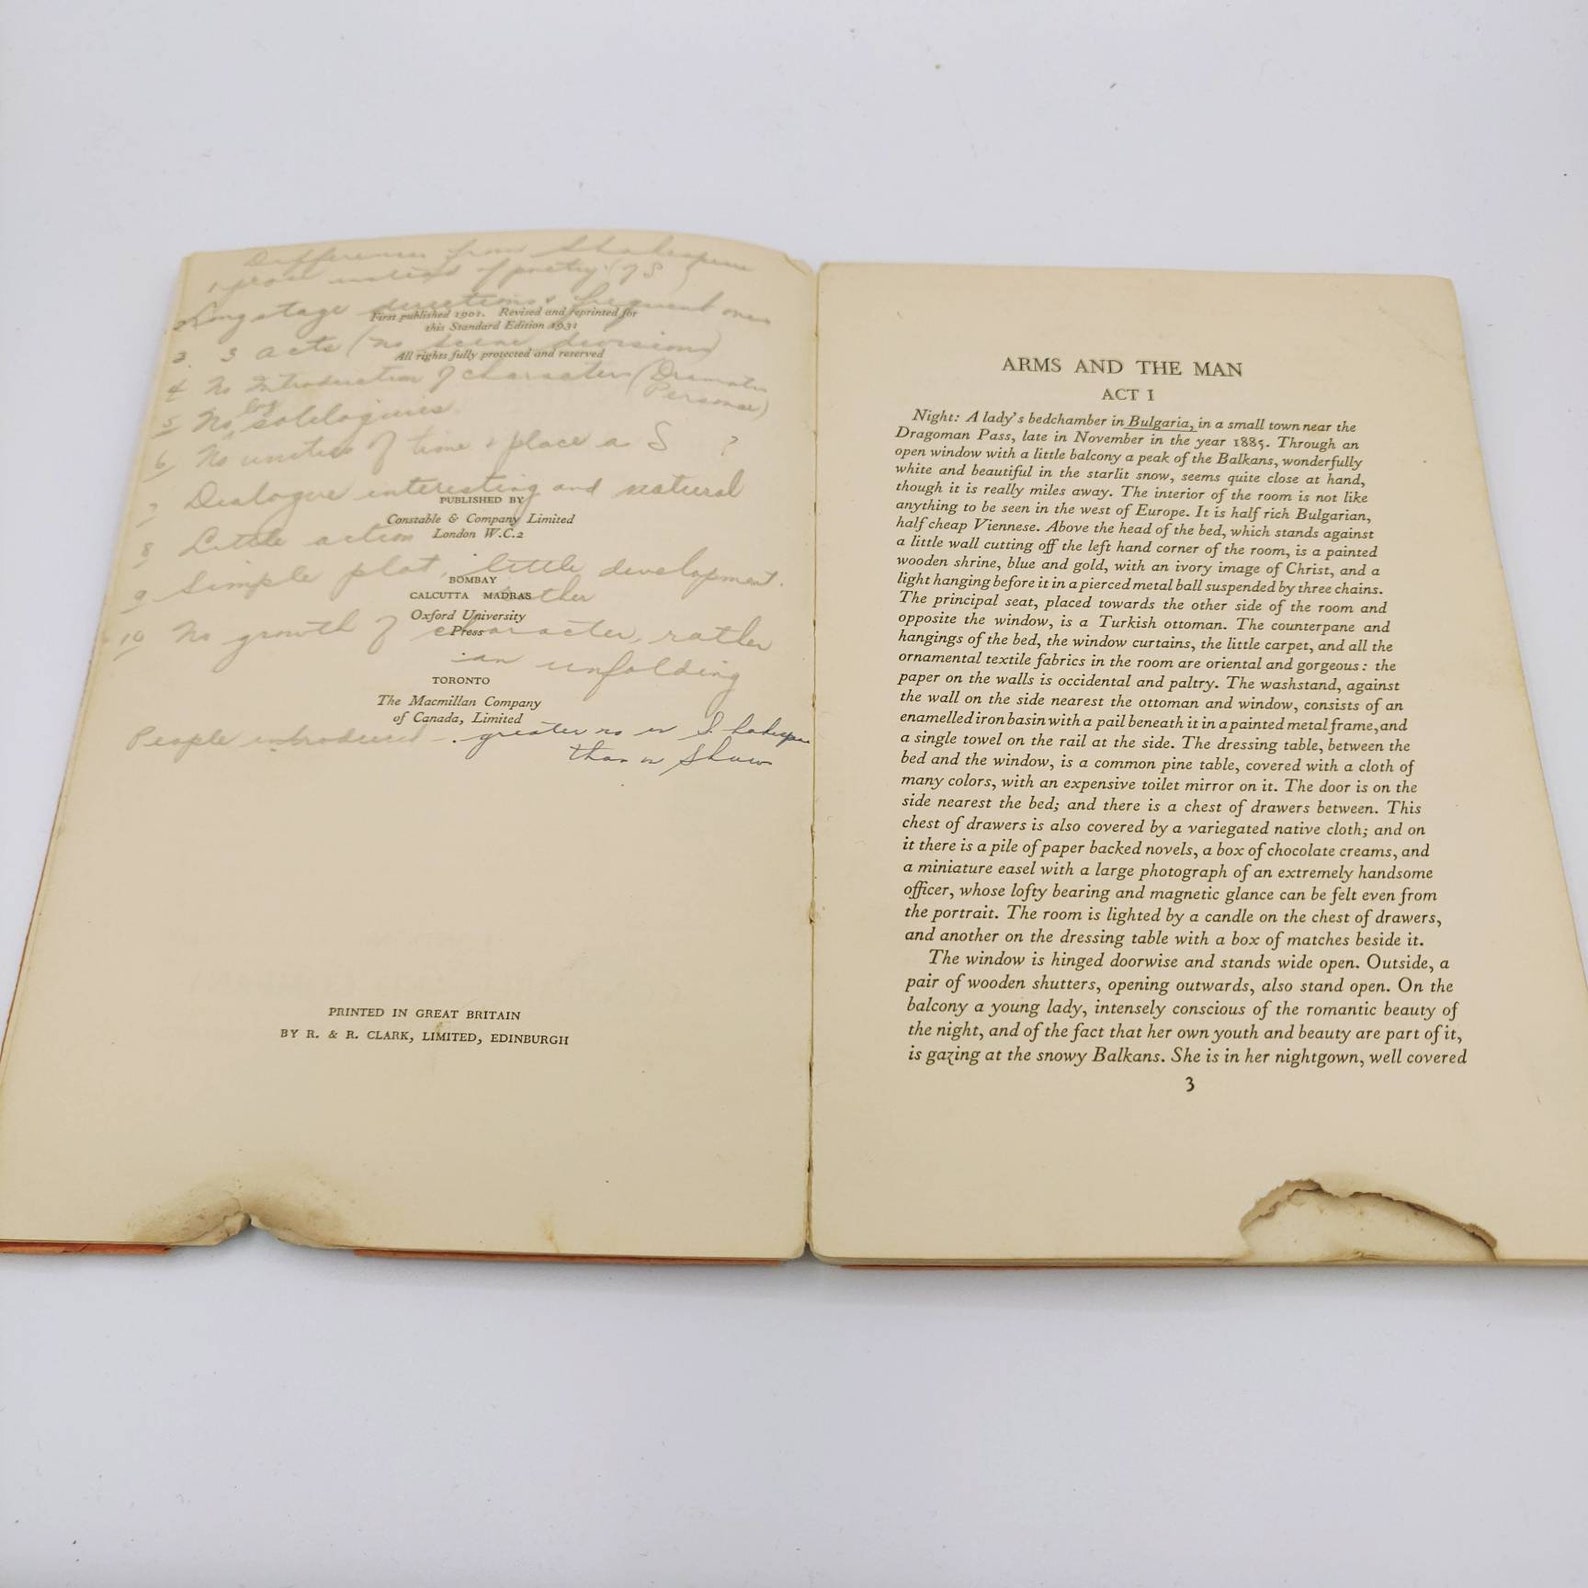 Differences from Shakespeare
1 prose instead of poetry (of S)
2 Long stage directions & frequent ones
First published 1901. Revised and reprinted for
this Standard Edition 1931
3. 3 acts (no scene divisions)
All rights fully protected and reserved
4 No Introduction of characters (Dramatis
Personae)
5 No long soliloquies
6 No unities of time & place as S ?
7 Dialogue interesting and natural
PUBLISHED BY
Constable & Company Limited
London W.C.2
8 Little action
9 Simple plot, little development.
BOMBAY
CALCUTTA MADRAS
Oxford University
Press
10 No growth of character, rather
an unfolding
TORONTO
The Macmillan Company
of Canada, Limited
People introduced - greater no in Shakespeare
than in Shaw
PRINTED IN GREAT BRITAIN
BY R. & R. CLARK, LIMITED, EDINBURGH
ARMS AND THE MAN
ACT I
Night: A lady's bedchamber in Bulgaria, in a small town near the
Dragoman Pass, late in November in the year 1885. Through an
open window with a little balcony a peak of the Balkans, wonderfully
white and beautiful in the starlit snow, seems quite close at hand,
though it is really miles away. The interior of the room is not like
anything to be seen in the west of Europe. It is half rich Bulgarian,
half cheap Viennese. Above the head of the bed, which stands against
a little wall cutting off the left hand corner of the room, is a painted
wooden shrine, blue and gold, with an ivory image of Christ, and a
light hanging before it in a pierced metal ball suspended by three chains.
The principal seat, placed towards the other side of the room and
opposite the window, is a Turkish ottoman. The counterpane and
hangings of the bed, the window curtains, the little carpet, and all the
ornamental textile fabrics in the room are oriental and gorgeous: the
paper on the walls is occidental and paltry. The washstand, against
the wall on the side nearest the ottoman and window, consists of an
enamelled iron basin with a pail beneath it in a painted metal frame, and
a single towel on the rail at the side. The dressing table, between the
bed and the window, is a common pine table, covered with a cloth of
many colors, with an expensive toilet mirror on it. The door is on the
side nearest the bed; and there is a chest of drawers between. This
chest of drawers is also covered by a variegated native cloth; and on
it there is a pile of paper backed novels, a box of chocolate creams, and
a miniature easel with a large photograph of an extremely handsome
officer, whose lofty bearing and magnetic glance can be felt even from
the portrait. The room is lighted by a candle on the chest of drawers,
and another on the dressing table with a box of matches beside it.
The window is hinged doorwise and stands wide open. Outside, a
pair of wooden shutters, opening outwards, also stand open. On the
balcony a young lady, intensely conscious of the romantic beauty of
the night, and of the fact that her own youth and beauty are part of it,
is gazing at the snowy Balkans. She is in her nightgown, well covered
3